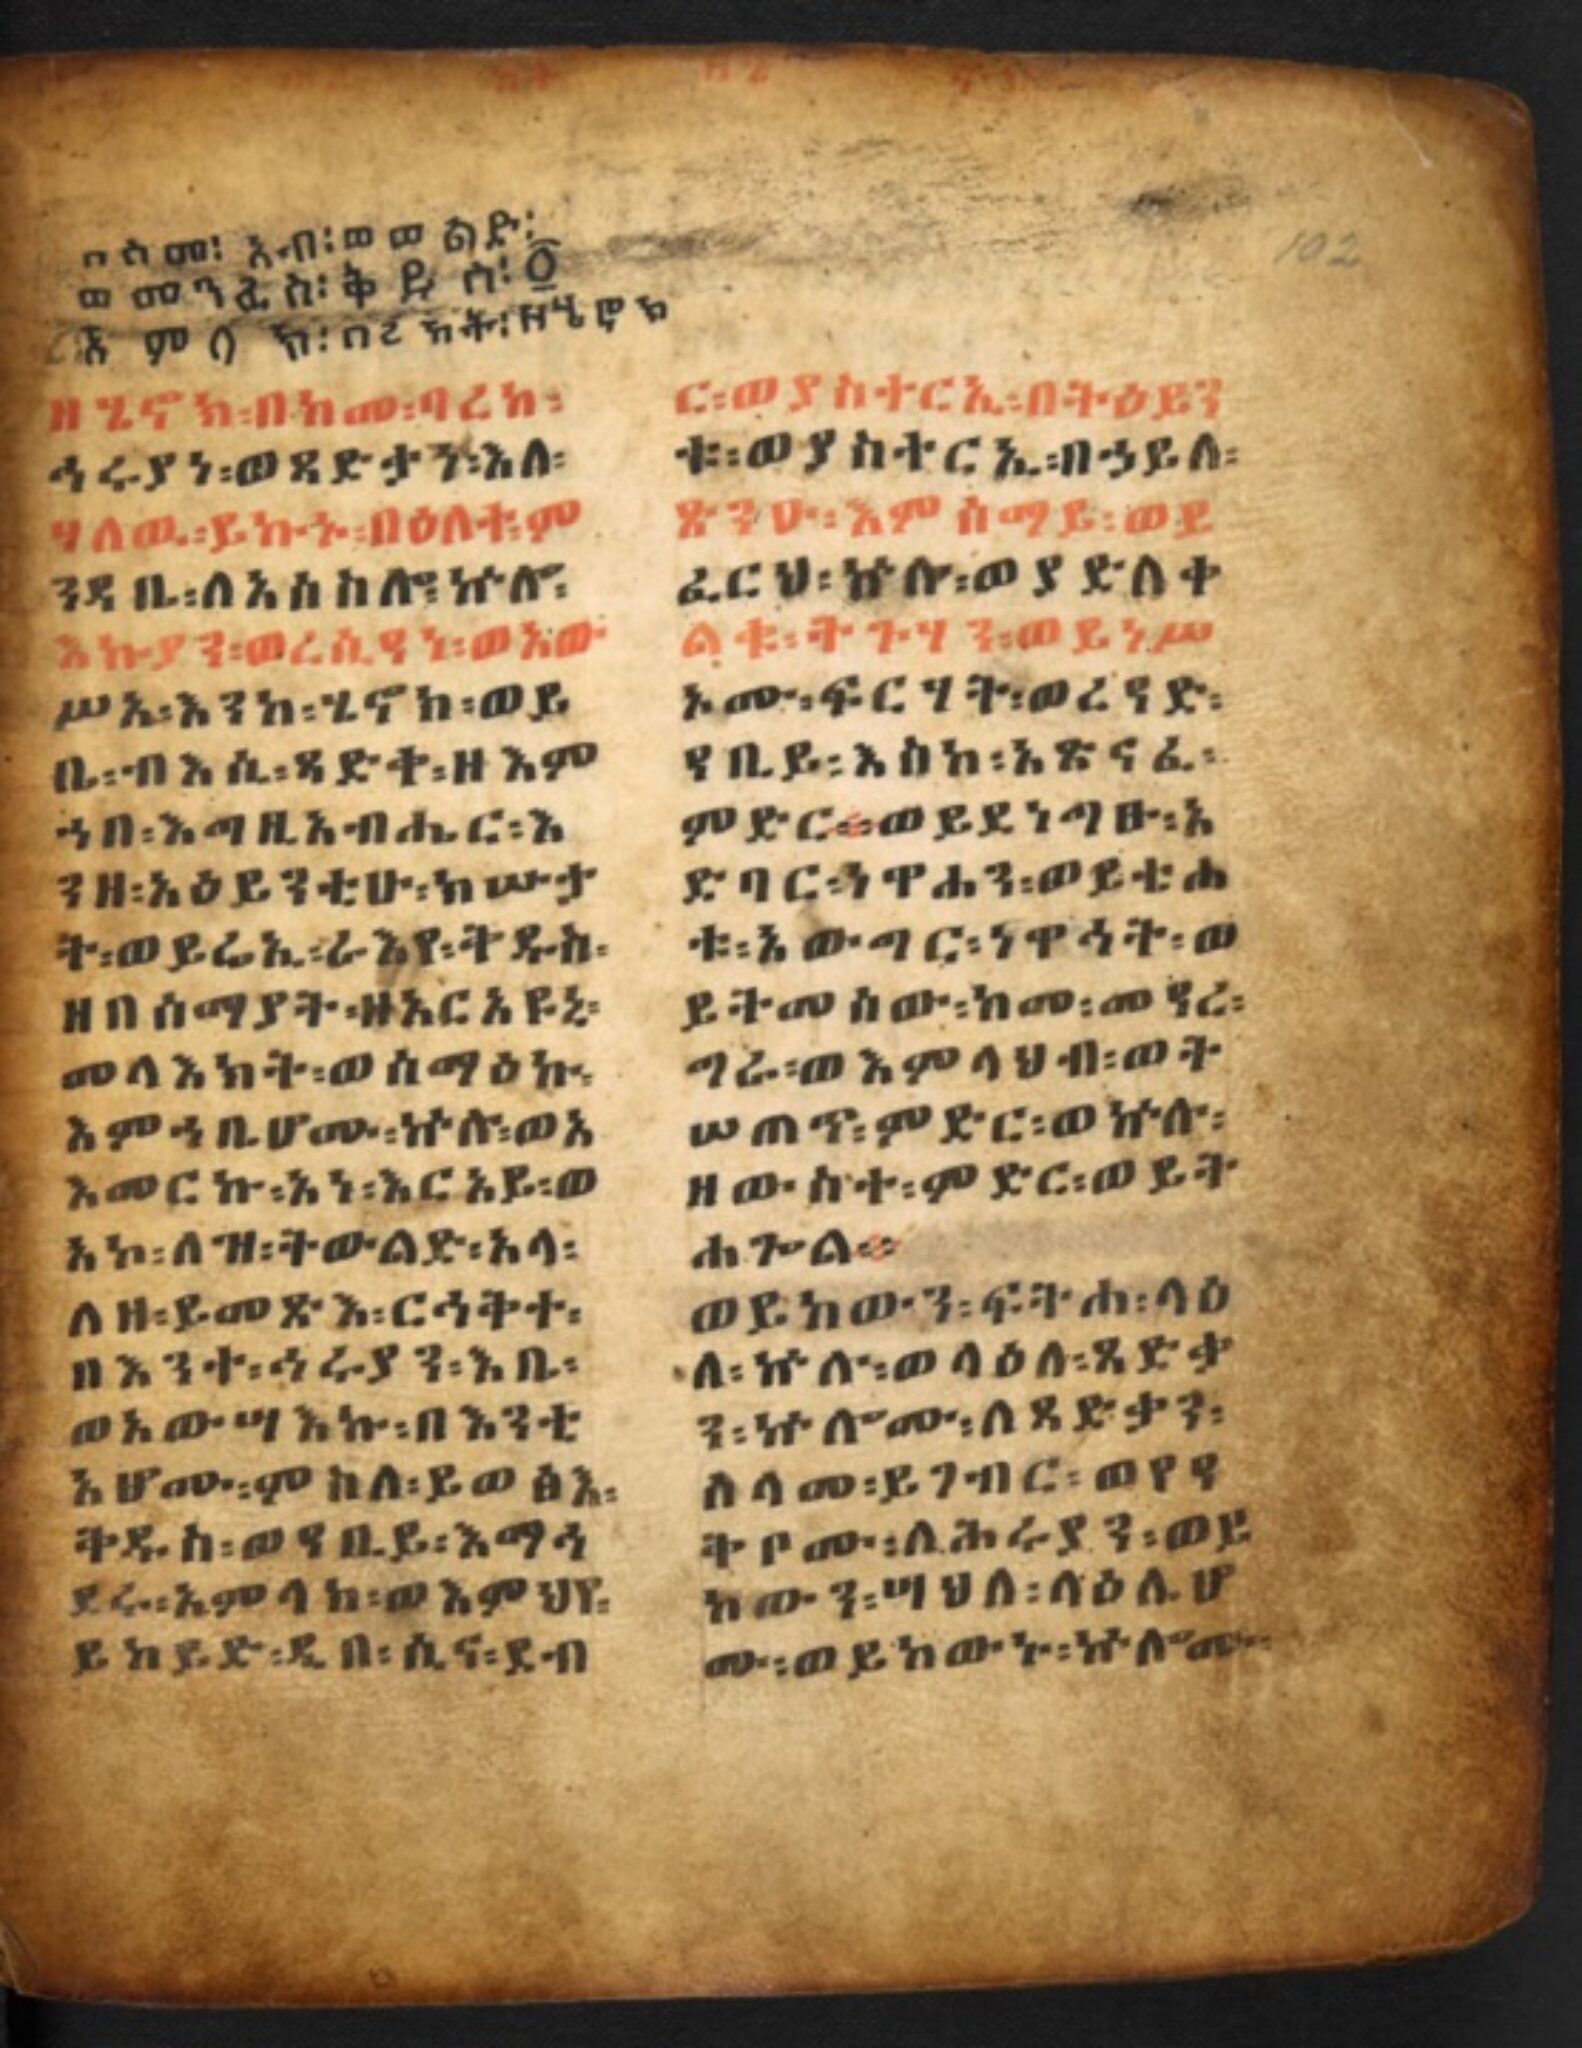 በስመ፡ አብ፡ ወወልድ፡
ወመንፈስ፡ ቅዱስ፡ ፩
አምላክ፡ በረከት፡ ዘሄኖክ
ዘሄኖክ፡ በከመ፡ ባረከ፡
ኅሩያነ፡ ወጻድቃን፡ እለ፡
ሃለዉ፡ ይኩኑ፡ በዕለተ፡ ም
ንዳቤ፡ ለአሰስሎ፡ ኵሎ፡
እኩያን፡ ወረሲዓነ፡ ወአው
ሥአ፡ እንከ፡ ሄኖክ፡ ወይ
ቤ፡ ብእሲ፡ ጻድቅ፡ ዘእም
ኀበ፡ እግዚአብሔር፡ እ
ንዘ፡ አዕይንቲሁ፡ ክሡታ
ት፡ ወይሬኢ፡ ራእየ፡ ቅዱስ፡
ዘበሰማያት፡ ዘአርአዩኒ፡
መላእክት፡ ወሰማዕኩ፡
እምኀቤሆሙ፡ ኵሎ፡ ወአ
እመርኩ፡ አነ፡ እርአይ፡ ወ
አኮ፡ ለዝ፡ ትውልድ፡ አላ፡
ለዘ፡ ይመጽእ፡ ርኁቅተ፡
በእንተ፡ ኅሩያን፡ እቤ፡
ወአውሣእኩ፡ በእንቲ
አሆሙ፡ ምስለ፡ ይወፅእ፡
ቅዱስ፡ ወዓቢይ፡ እማኅ
ደሩ፡ አምላክ፡ ወእምህየ፡
ይከይድ፡ ዲበ፡ ሲና፡ ደብ
ር፡ ወያስተርኢ፡ በትዕይን
ቱ፡ ወያስተርኢ፡ በኃይለ፡
ጽንዑ፡ እምሰማይ፡ ወይ
ፈርህ፡ ኵሉ፡ ወያድለቀ
ልቁ፡ ትጉሃን፡ ወይነሥ
ኦሙ፡ ፍርሃት፡ ወረዓድ፡
ዓቢይ፡ እስከ፡ አጽናፈ፡
ምድር። ወይደነግፁ፡ አ
ድባር፡ ነዋሐን፡ ወይቴሐ
ቱ፡ አውግር፡ ነዋኅት፡ ወ
ይትመሰው፡ ከመ፡ መዓረ፡
ግራ፡ ወእምላህብ፡ ወት
ሠጠጥ፡ ምድር፡ ወኵሉ፡
ዘውስተ፡ ምድር፡ ወይት
ሐጐል።
ወይከውን፡ ፍትሐ፡ ላዕ
ለ፡ ኵሉ፡ ወላዕለ፡ ጻድቃ
ን፡ ኵሎሙ፡ ለጻድቃን፡
ሰላመ፡ ይገብር፡ ወየዓ
ቅቦሙ፡ ለሕሩያን፡ ወይ
ከውን፡ ሣህለ፡ ላዕሌሆ
ሙ፡ ወይከውኑ፡ ኵሎሙ፡
102